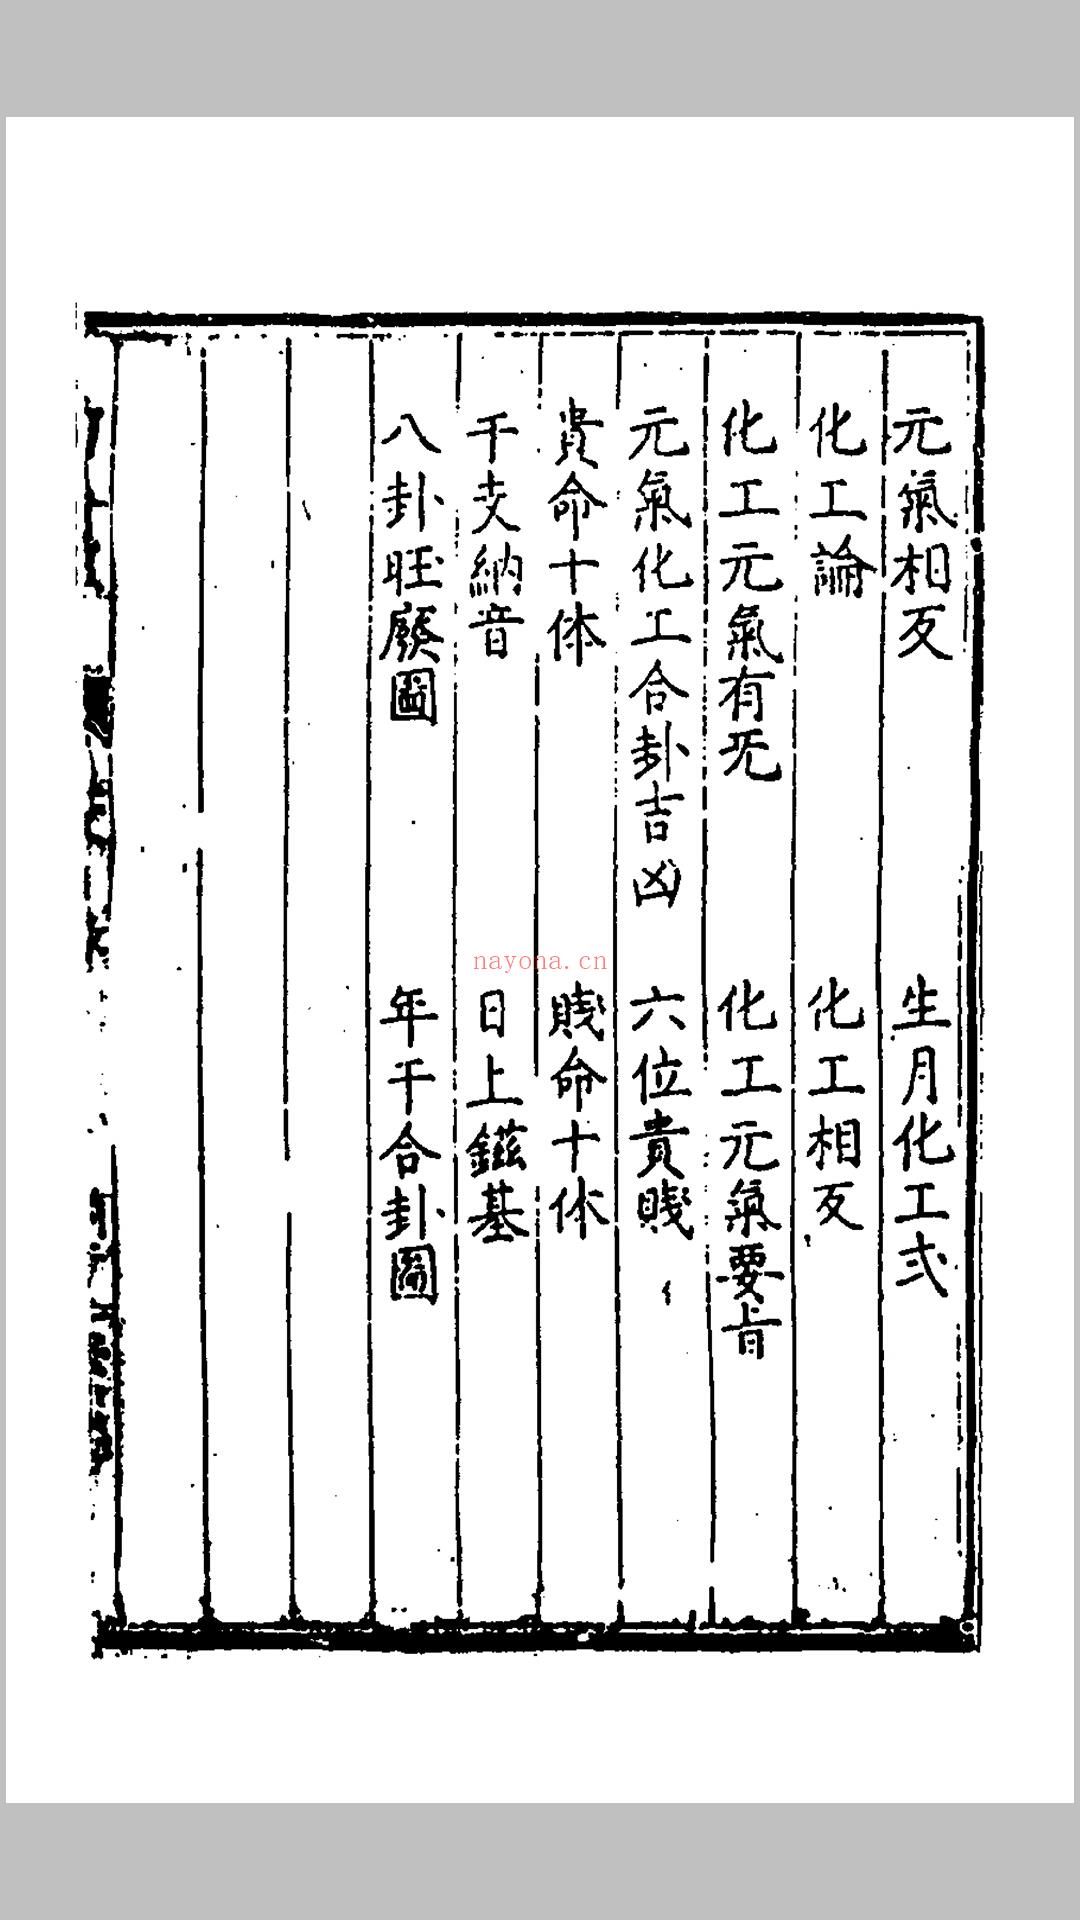 元氣相反　生月化工式
化工論　化工相反
化工元氣有旡　化工元氣要旨
元氣化工合卦吉凶　六位貴賤
貴命十体　賤命十体
干支納音　日上鎡基
八卦旺廢圖　年干合卦圖
nayona.cn